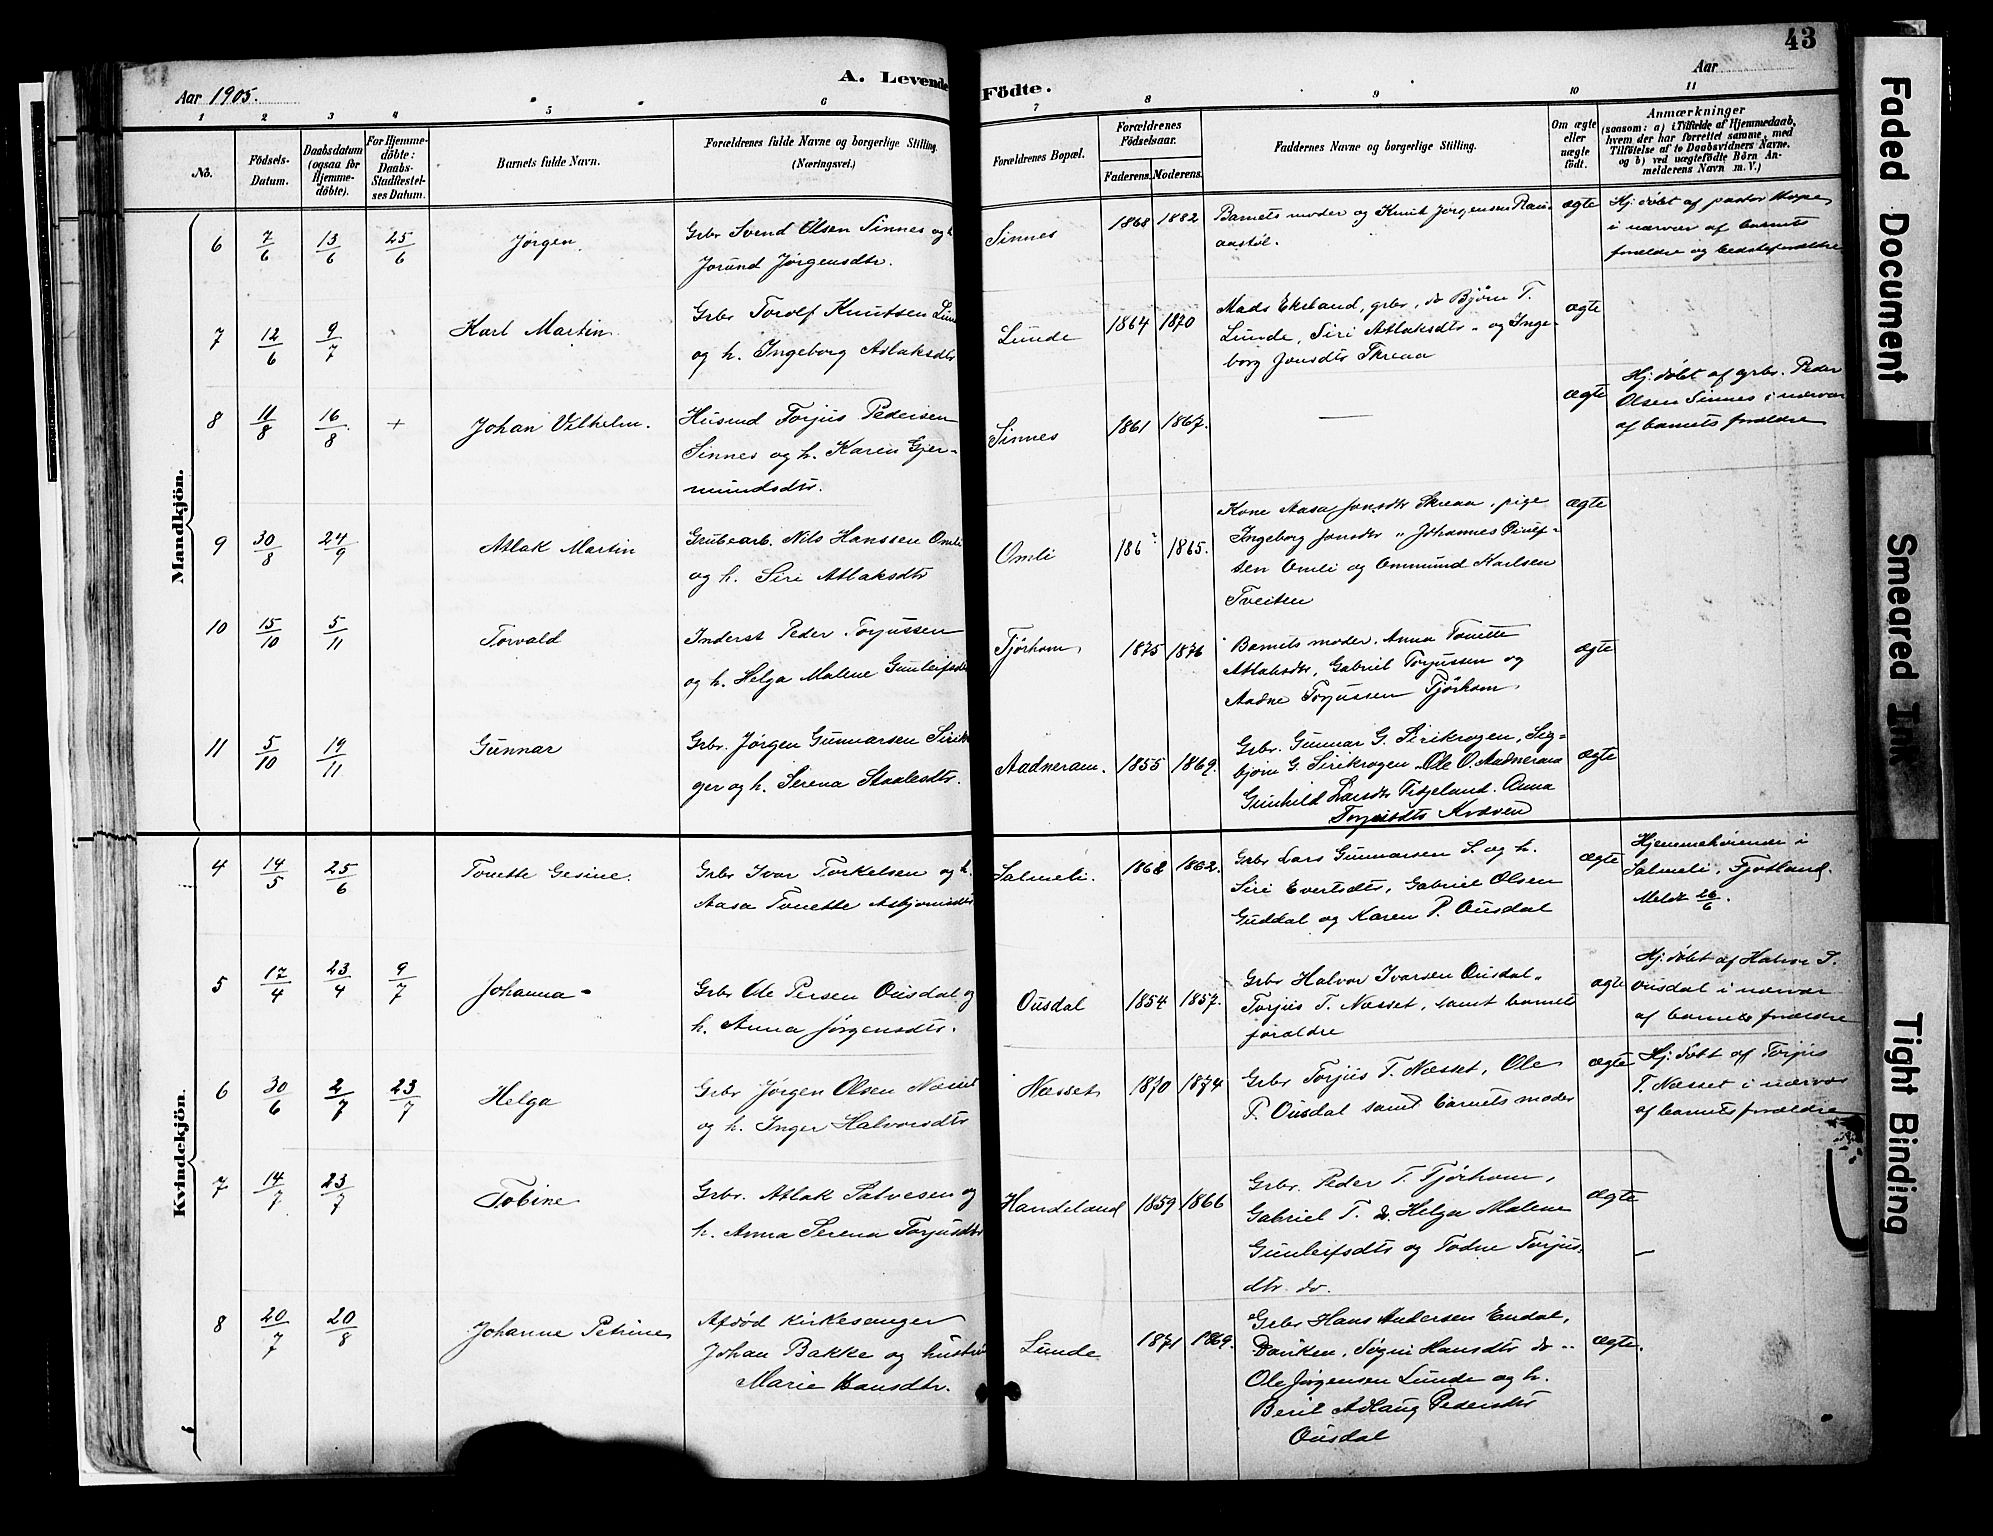 43
Aar 1905.
A. Levende Födte.
Aar
1 2 3 4 5 6 7 8 9 10 11
No.
Födsels-
Datum.
Daabsdatum
(ogsaa for
Hjemme-
döbte).
For Hjemme-
döbte:
Daabs-
Stadfæstel-
ses Datum.
Barnets fulde Navn.
Forældrenes fulde Navne og borgerlige Stilling.
(Næringsvei.)
Forældrenes Bopæl.
Forældrenes
Födselsaar.
Faderens. Moderens.
Faddernes Navne og borgerlige Stilling.
Om ægte
eller
uægte
födt.
Anmærkninger
(saasom: a) i Tilfælde af Hjemmedaab,
hvem der har forrettet samme, med
Tilföielse af to Daabsvidners Navne.
og b) ved uægtefödte Börn An-
melderens Navn m. V.)
Mandkjön.
6 7/6 13/6 25/6 Jørgen
Grbr Svend Olsen Sinnes og h.
Jorund Jørgensdtr.
Sinnes 1868 1882
Barnets moder og Knut Jørgensen
aastøl.
ægte
Hj. døbt af pastor
i nærvær af barnets
forældre og bedsteforældre
7 12/6 9/7 Karl Martin
Grbr Torolf Knutsen Lunde
og h. Ingeborg Atlaksdtr
Lunde 1864 1870
Mads Eksland, grbr, do Bjørn T.
Lunde, Siri Atlaksdtr. og Inge-
borg Jonsdtr Skreaa
ægte
8 11/8 16/8 + Johan Vilhelm.
Husmd Torjus Pedersen
Sinnes og h. Karen Gjer-
mundsdtr.
Sinnes 1861 1867.
—
ægte
Hj. døbt af grbr. Peder
Olsen Sinnes i nærvær
af barnets forældre
9 30/8 24/9 Atlak Martin
Grubearb. Nils Hanssen Omli
og h. Siri Atlaksdtr
Omli 186 1865.
Kone Aasa Jonsdtr Skreaa, pige
Ingeborg Jonsdtr " Johannes
sen Omli og Ommund Karlsen
Tveiten
ægte
10 15/10 5/11 Torvald
Inderst Peder Torjussen
og h. Helga Malene Gunleifsdtr
Tjørhom 1875 1876
Barnets moder, Anna Tonette
Atlaksdtr, Gabriel Torjussen og
Aadne Torjussen Tjørhom.
ægte
11 5/10 19/11 Gunnar
Grbr. Jørgen Gunnarsen Sirikro-
gen og h. Serena Staalesdtr.
Aadneram. 1855 1869.
Grbr. Gunnar G. Sirikrogen, Sig-
bjørn G. Sirikrogen, Ole O. Aadneram
Gunhild Larsdtr Fidjeland. Anna
Torjusdtr Kvæven
ægte
Kvindekjön.
4 14/5 25/6 Tonette Gesine.
Grbr Ivar Torkelsen og h.
Aasa Tonette Asbjørnsdtr
Salmeli. 1862 1862.
Grbr Lars Gunnarsen S. og h.
Siri Evertsdtr, Gabriel Olsen
Guddal og Karen P. Ousdal
ægte
Hjemmehørende i
Salmeli, Fjotland.
Meldt 26/6.
5 17/4 23/4 9/7 Johanna
Grbr Ole Persen Ousdal og
h. Anna Jørgensdtr.
Ousdal 1854 1857.
Grbr Halvor Ivarsen Ousdal,
Torjus T. Nesset, samt barnets
forældre
ægte
Hj. døbt af Halvor I.
Ousdal i nærvær
af barnets forældre
6 30/6 2/7 23/7 Helga
Grbr Jørgen Olsen Nesset
og h. Inger Halvorsdtr
Nesset 1870 1874
Grbr Torjus T. Nesset, Ole
P. Ousdal samt barnets moder
ægte
Hj. døbt af Torjus
T. Nesset i nærvær
af barnets forældre
7 14/7 23/7 Tobine
Grbr. Atlak Salvesen og
h. Anna Serena Torjusdtr
Handeland 1859 1866
Grbr. Peder T. Tjørhom,
Gabriel T. do, Helga Malene
Gunleifsdtr og Todne Torjus-
dtr. do.
ægte
—
8 20/7 20/8 Johanne Petrine
Afdød kirkesanger
Johan Bakke og hustru
Marie Hansdtr.
Lunde 1871 1869.
Grbr Hans Andersen Eudal,
Dariken, Søgni Hansdtr do "
Ole Jørgensen Lunde og h.
Berit Adlaug Pedersdtr
Ousdal
ægte.
6
Faded Document
Smeared Ink
Tight Binding